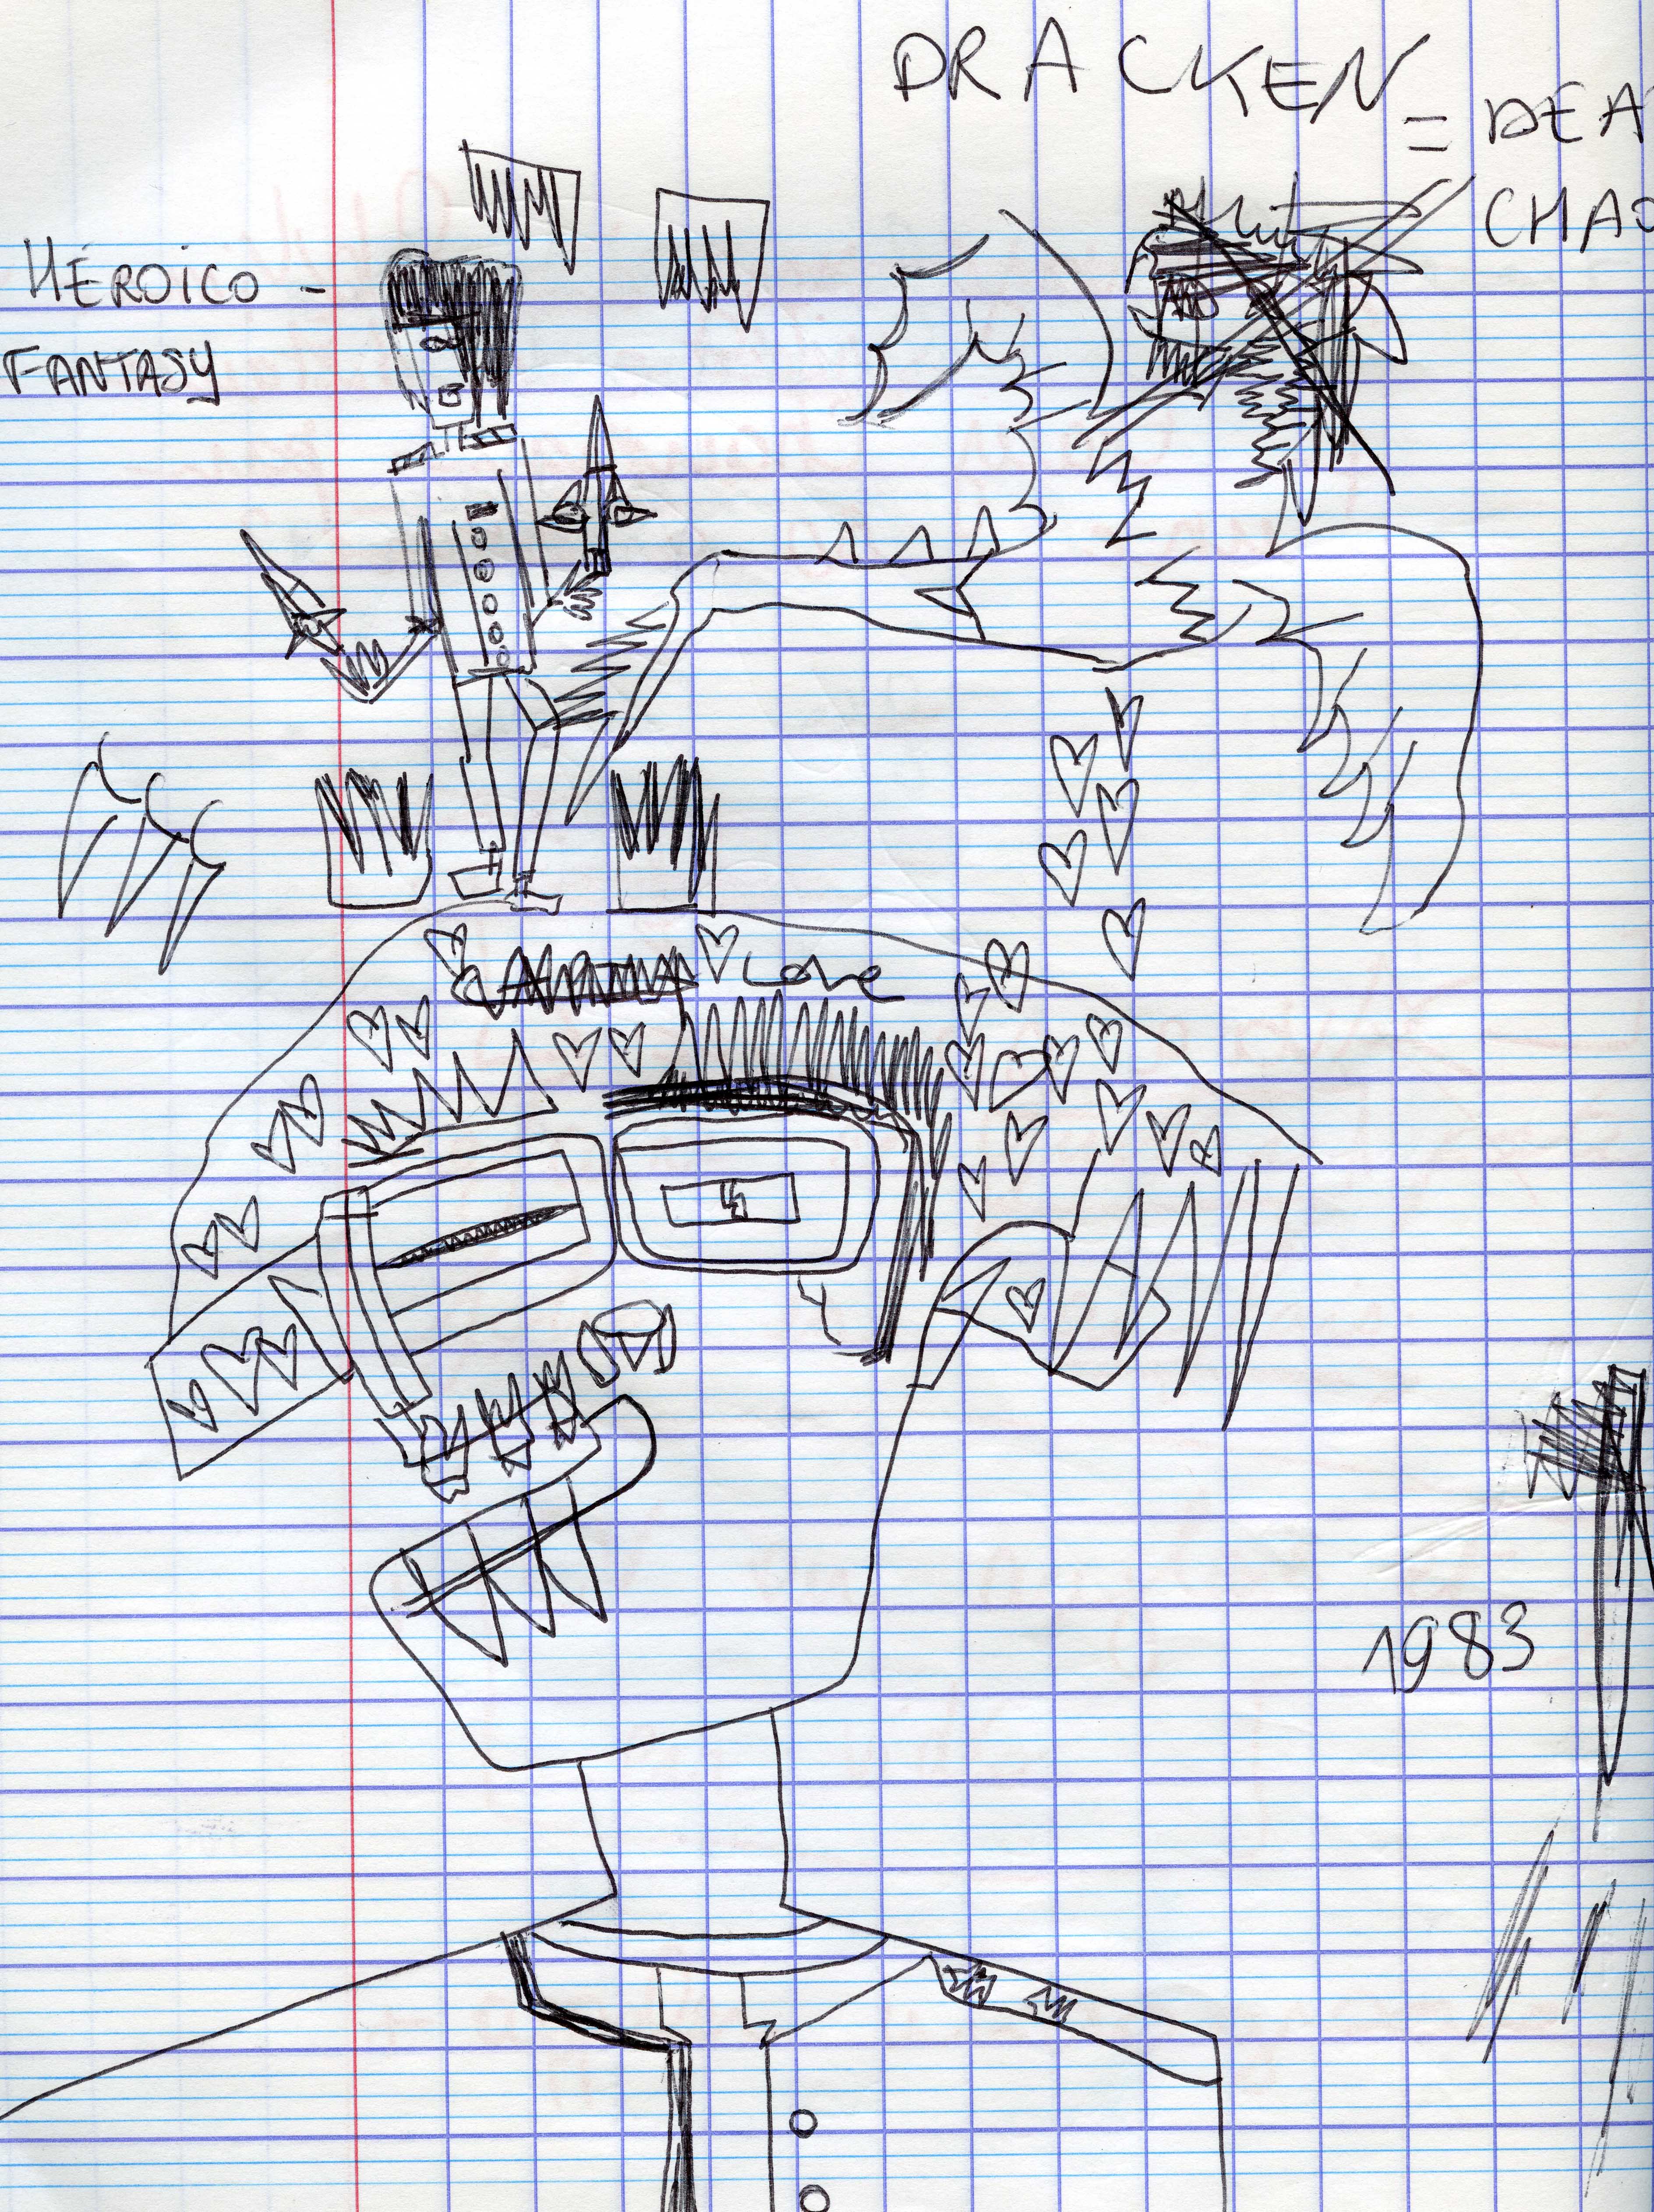 DRACKEN
= DEA
CHAO
HÉROICO -
FANTASY
Love
1983